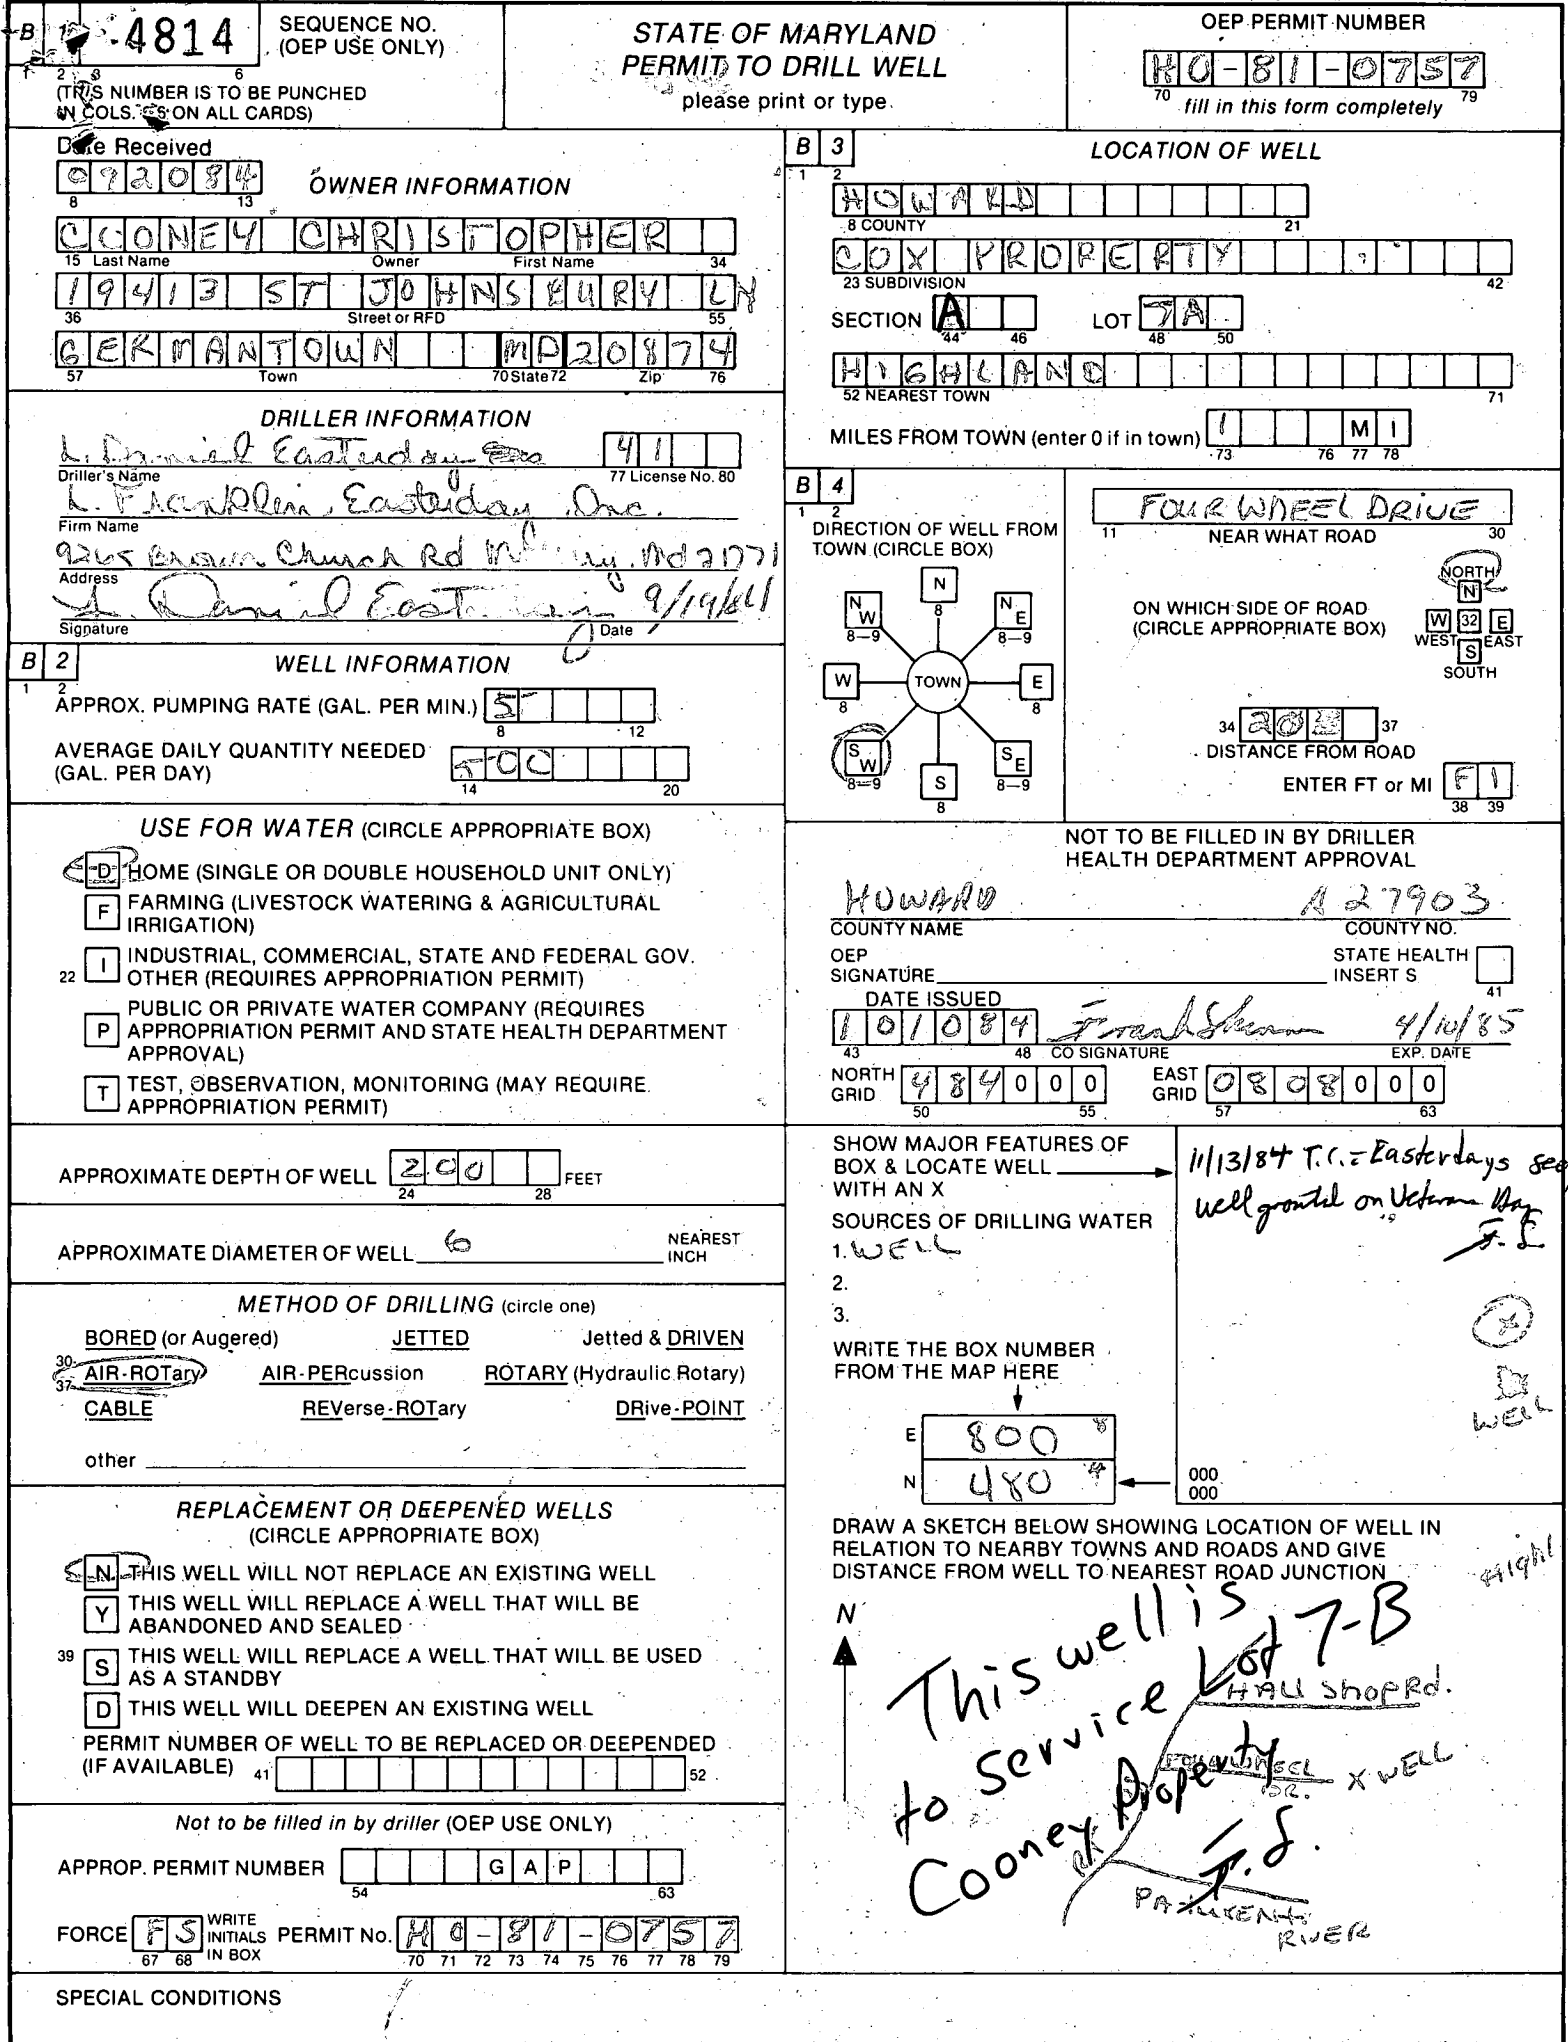 B 1 4814 SEQUENCE NO. (OEP USE ONLY)
2 3 6
(THIS NUMBER IS TO BE PUNCHED
IN COLS. 3-6 ON ALL CARDS)
STATE OF MARYLAND
PERMIT TO DRILL WELL
please print or type
OEP PERMIT NUMBER
HO-81-0757
70 79
fill in this form completely
Date Received
092084
8 13
OWNER INFORMATION
COONEY CHRISTOPHER
15 Last Name Owner First Name 34
19413 ST JOHNSBURY LN
36 Street or RFD 55
GERMANTOWN MD 20874
57 Town 70 State 72 Zip 76
DRILLER INFORMATION
L. Daniel Easterday 41
Driller's Name 77 License No. 80
L. Franklin Easterday Inc.
Firm Name
9265 Brown Church Rd Mt Airy, Md 21771
Address
L. Daniel Easterday 9/19/84
Signature Date
B 2 WELL INFORMATION
1 2
APPROX. PUMPING RATE (GAL. PER MIN.) 5
8 12
AVERAGE DAILY QUANTITY NEEDED
(GAL. PER DAY) 500
14 20
USE FOR WATER (CIRCLE APPROPRIATE BOX)
D HOME (SINGLE OR DOUBLE HOUSEHOLD UNIT ONLY)
F FARMING (LIVESTOCK WATERING & AGRICULTURAL
IRRIGATION)
22 I INDUSTRIAL, COMMERCIAL, STATE AND FEDERAL GOV.
OTHER (REQUIRES APPROPRIATION PERMIT)
P PUBLIC OR PRIVATE WATER COMPANY (REQUIRES
APPROPRIATION PERMIT AND STATE HEALTH DEPARTMENT
APPROVAL)
T TEST, OBSERVATION, MONITORING (MAY REQUIRE
APPROPRIATION PERMIT)
APPROXIMATE DEPTH OF WELL 200 FEET
24 28
APPROXIMATE DIAMETER OF WELL 6 NEAREST INCH
METHOD OF DRILLING (circle one)
BORED (or Augered) JETTED Jetted & DRIVEN
30-37 AIR-ROTary AIR-PERcussion ROTARY (Hydraulic Rotary)
CABLE REVerse-ROTary DRive-POINT
other
REPLACEMENT OR DEEPENED WELLS
(CIRCLE APPROPRIATE BOX)
N THIS WELL WILL NOT REPLACE AN EXISTING WELL
Y THIS WELL WILL REPLACE A WELL THAT WILL BE
ABANDONED AND SEALED
39 S THIS WELL WILL REPLACE A WELL THAT WILL BE USED
AS A STANDBY
D THIS WELL WILL DEEPEN AN EXISTING WELL
PERMIT NUMBER OF WELL TO BE REPLACED OR DEEPENED
(IF AVAILABLE) 41 52
Not to be filled in by driller (OEP USE ONLY)
APPROP. PERMIT NUMBER GAP
54 63
FORCE FS WRITE INITIALS IN BOX PERMIT No. HO-81-0757
67 68 70 71 72 73 74 75 76 77 78 79
SPECIAL CONDITIONS
B 3 LOCATION OF WELL
1 2
HOWARD
8 COUNTY 21
COX PROPERTY
23 SUBDIVISION 42
SECTION A LOT 7A
44 46 48 50
HIGHLAND
52 NEAREST TOWN 71
MILES FROM TOWN (enter 0 if in town) 1 MI
73 76 77 78
B 4
1 2
DIRECTION OF WELL FROM
TOWN (CIRCLE BOX)
N 8
NW 8-9 NE 8-9
W 8 TOWN E 8
SW 8-9 SE 8-9
S 8
FOUR WHEEL DRIVE
11 NEAR WHAT ROAD 30
ON WHICH SIDE OF ROAD
(CIRCLE APPROPRIATE BOX)
NORTH
N
W 32 E
WEST EAST
S
SOUTH
34 20 37
DISTANCE FROM ROAD
ENTER FT or MI F
38 39
NOT TO BE FILLED IN BY DRILLER
HEALTH DEPARTMENT APPROVAL
HOWARD A 27903
COUNTY NAME COUNTY NO.
OEP SIGNATURE STATE HEALTH INSERT S
41
DATE ISSUED
101084 Frank Skinner 4/10/85
43 48 CO SIGNATURE EXP. DATE
NORTH GRID 484000 EAST GRID 0808000
50 55 57 63
SHOW MAJOR FEATURES OF
BOX & LOCATE WELL
WITH AN X
SOURCES OF DRILLING WATER
1. WELL
2.
3.
WRITE THE BOX NUMBER
FROM THE MAP HERE
E 800 8
N 480 4
11/13/84 T.C. = Easterdays see
well grouted on Veterans Day
F.S.
X
WELL
000
000
DRAW A SKETCH BELOW SHOWING LOCATION OF WELL IN
RELATION TO NEARBY TOWNS AND ROADS AND GIVE
DISTANCE FROM WELL TO NEAREST ROAD JUNCTION
N
This well is
to service Lot 7-B
Cooney Property
F.S.
HALL Shop Rd.
FOUR WHEEL DR. X WELL
PATUXENT
RIVER